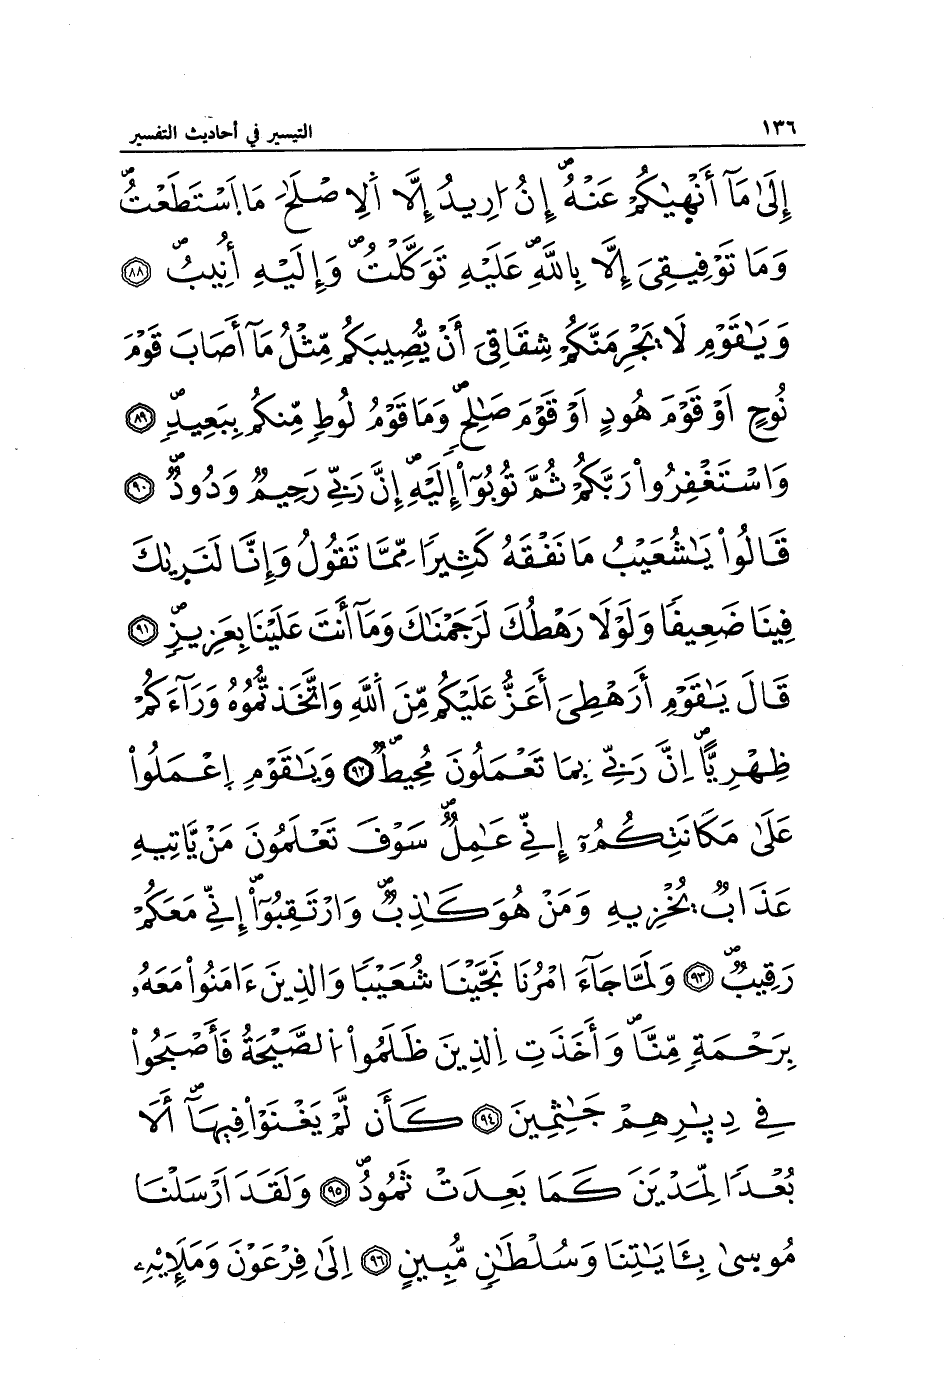 ١٣٦ التيسير في أحاديث التفسير
إِلَىٰ مَآ أَنْهَيٰكُمْ عَنْهُۖ إِنُ ا۟رِيدُ إِلَّا أَ۬لِاصْلَٰحَ مَا اَ۪سْتَطَعْتُۖ
وَمَا تَوْفِيقِىَ إِلَّا بِاللَّهِۖ عَلَيْهِ تَوَكَّلْتُۖ وَإِلَيْهِ أُنِيبُۖ ٨٨
وَيَٰقَوْمِ لَا يَجْرِمَنَّكُمْ شِقَاقِىَ أَنْ يُّصِيبَكُم مِّثْلُ مَآ أَصَابَ قَوْمَ
نُوحٍ اَوْ قَوْمَ هُودٍ اَوْ قَوْمَ صَٰلِحٍۖ وَمَا قَوْمُ لُوطٍ مِّنكُم بِبَعِيدٍۖ ٨٩
وَاسْتَغْفِرُوا۟ رَبَّكُمْ ثُمَّ تُوبُوٓا۟ إِلَيْهِۖ إِنَّ رَبِّى رَحِيمٌ وَدُودٌۖ ٩٠
قَالُوا۟ يَٰشُعَيْبُ مَا نَفْقَهُ كَثِيرًا مِّمَّا تَقُولُ وَإِنَّا لَنَرَيٰكَ
فِينَا ضَعِيفًا وَلَوْلَا رَهْطُكَ لَرَجَمْنَٰكَ وَمَآ أَنتَ عَلَيْنَا بِعَزِيزٍۖ ٩١
قَالَ يَٰقَوْمِ أَرَهْطِىَ أَعَزُّ عَلَيْكُم مِّنَ أَ۬للَّهِ وَاتَّخَذتُّمُوهُ وَرَآءَكُمْ
ظِهْرِيًّاۖ اِنَّ رَبِّى بِمَا تَعْمَلُونَ مُحِيطٌۖ ٩٢ وَيَٰقَوْمِ اِ۪عْمَلُوا۟
عَلَىٰ مَكَانَتِكُمُۥٓ إِنِّى عَٰمِلٌۖ سَوْفَ تَعْلَمُونَ مَنْ يَّاتِيهِ
عَذَابٌ يُخْزِيهِ وَمَنْ هُوَ كَٰذِبٌۖ وَارْتَقِبُوٓا۟ۖ إِنِّى مَعَكُمْ
رَقِيبٌۖ ٩٣ وَلَمَّا جَآءَ امْرُنَا نَجَّيْنَا شُعَيْبًا وَالذِينَ ءَامَنُوا۟ مَعَهُۥ
بِرَحْمَةٍ مِّنَّاۖ وَأَخَذَتِ اِ۬لذِينَ ظَلَمُوا۟ ا۬لصَّيْحَةُ فَأَصْبَحُوا۟
فِى دِيٰرِهِمْ جَٰثِمِينَ ٩٤ كَأَن لَّمْ يَغْنَوْا۟ فِيهَآۖ أَلَا
بُعْدًا لِّمَدْيَنَ كَمَا بَعِدَتْ ثَمُودُۖ ٩٥ وَلَقَدَ اَرْسَلْنَا
مُوسىٰ بِـَٔايَٰتِنَا وَسُلْطَٰنٍ مُّبِينٍ ٩٦ اِلَىٰ فِرْعَوْنَ وَمَلَإِيْهِۦ